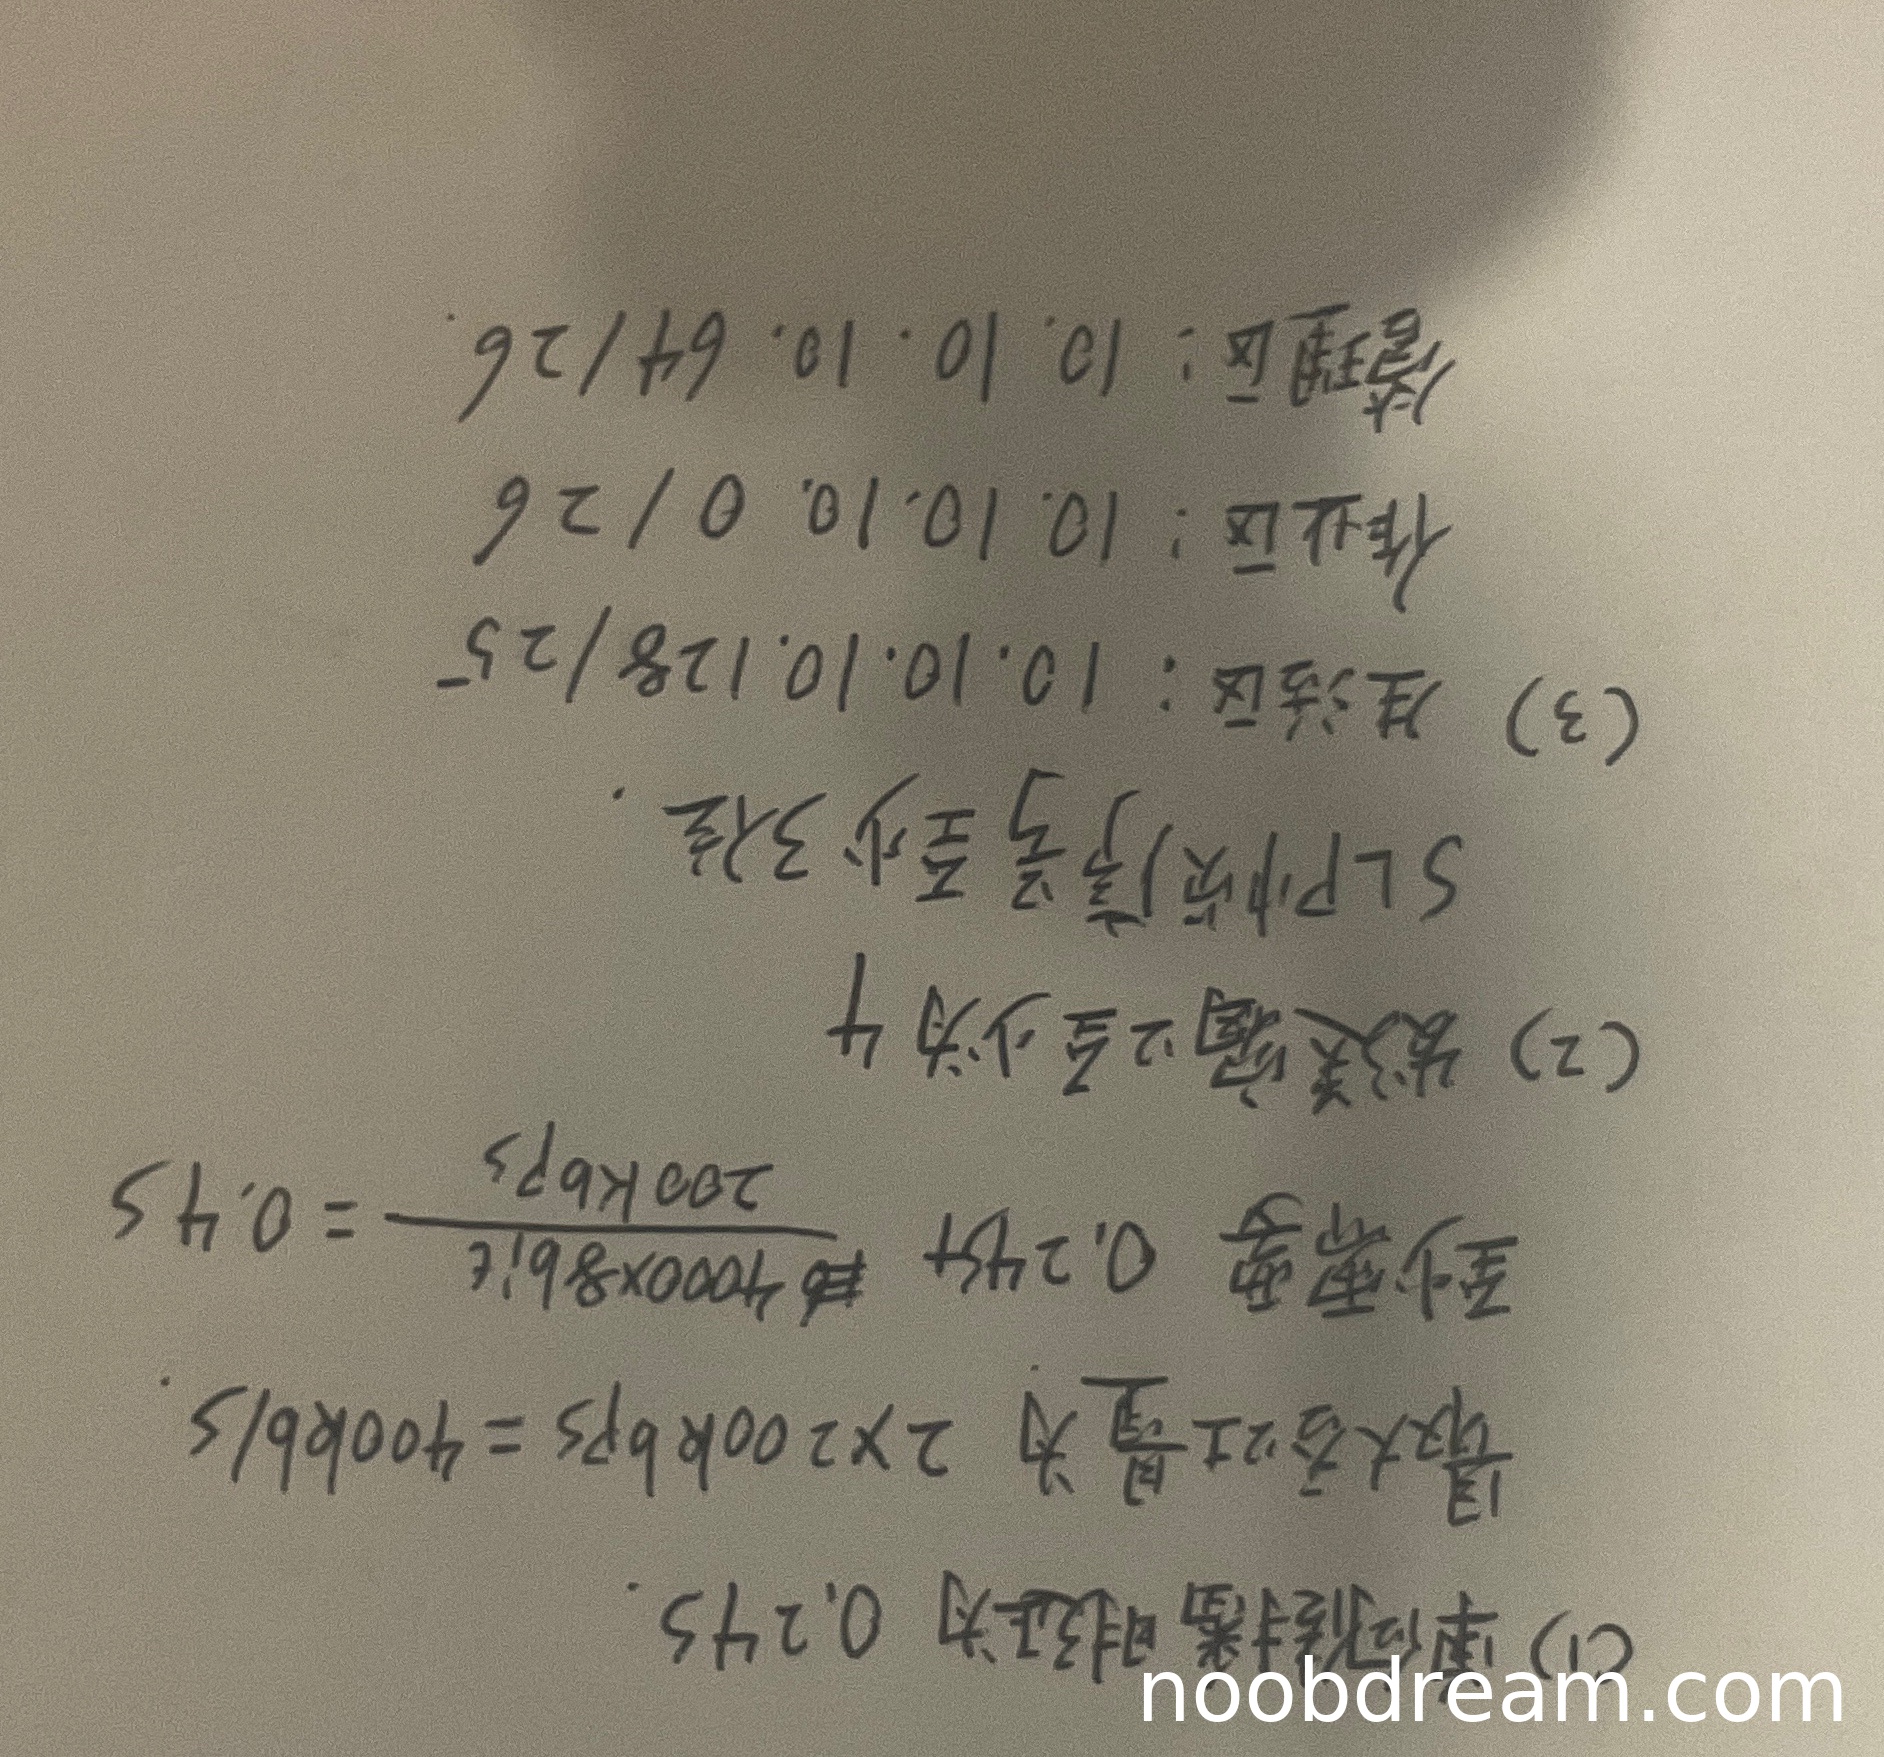 (1) 单向传播时延为 0.24s.
得最大吞吐量为 2×200kbps=400kb/s.
至少需要 0.24s+ 4000×8bit / 200kbps = 0.4s
(2) 发送窗口至少为 4
SLP帧序号至少3位.
(3) 生活区: 10.10.10.128/25
作业区: 10.10.10.0/26
管理区: 10.10.10.64/26.
noobdream.com